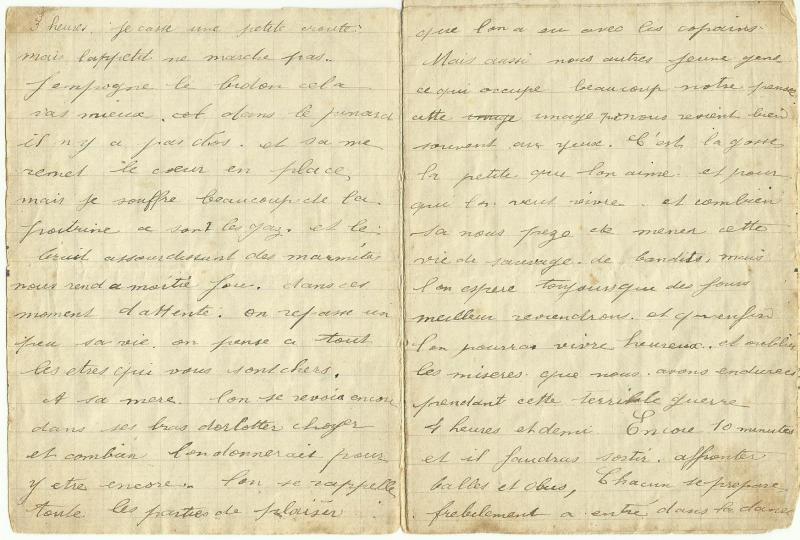 3 heures. je casse une petite croute.
mais l'appetit ne marche pas.
J'empogne le bidon cela
vas mieux. cet dans le pinard
il n y a pas d'os. et sa me
remet le coeur en place,
mais je souffre beaucoup de la
poitrine ce sont les gaz. et le
bruit assourdissant des marmites
nous rend a moitié fou. dans ces
moment d'attente. on repasse un
peu sa vie. on pense a tout
les etres qui vous sont chers.
A sa mere. l'on se revois encore
dans ses bras dorlotter choyer
et combien l'on donnerait pour
y etre encore. l'on se rappelle
toute les parties de plaisir
que l'on a eu avec les copains.
Mais aussi nous autres jeune gens
ce qui occupe beaucoup notre pensé
cette image nous revient bien
souvent aux yeux. C'est la gosse
la petite que l'on aime. et pour
qui l'on veut vivre. et combien
sa nous peze de mener cette
vie de sauvage. de bandits, mais
l'on espere toujours que des jours
meilleur reviendrons. et qu'enfin
l'on pourra vivre heureux. et oublier
les miseres que nous avons endurées
pendant cette terrible guerre
4 heures et demi Encore 10 minutes
et il faudras sortir. affronter
balles et obus, Chacun se prepare
febrilement a entré dans la danse